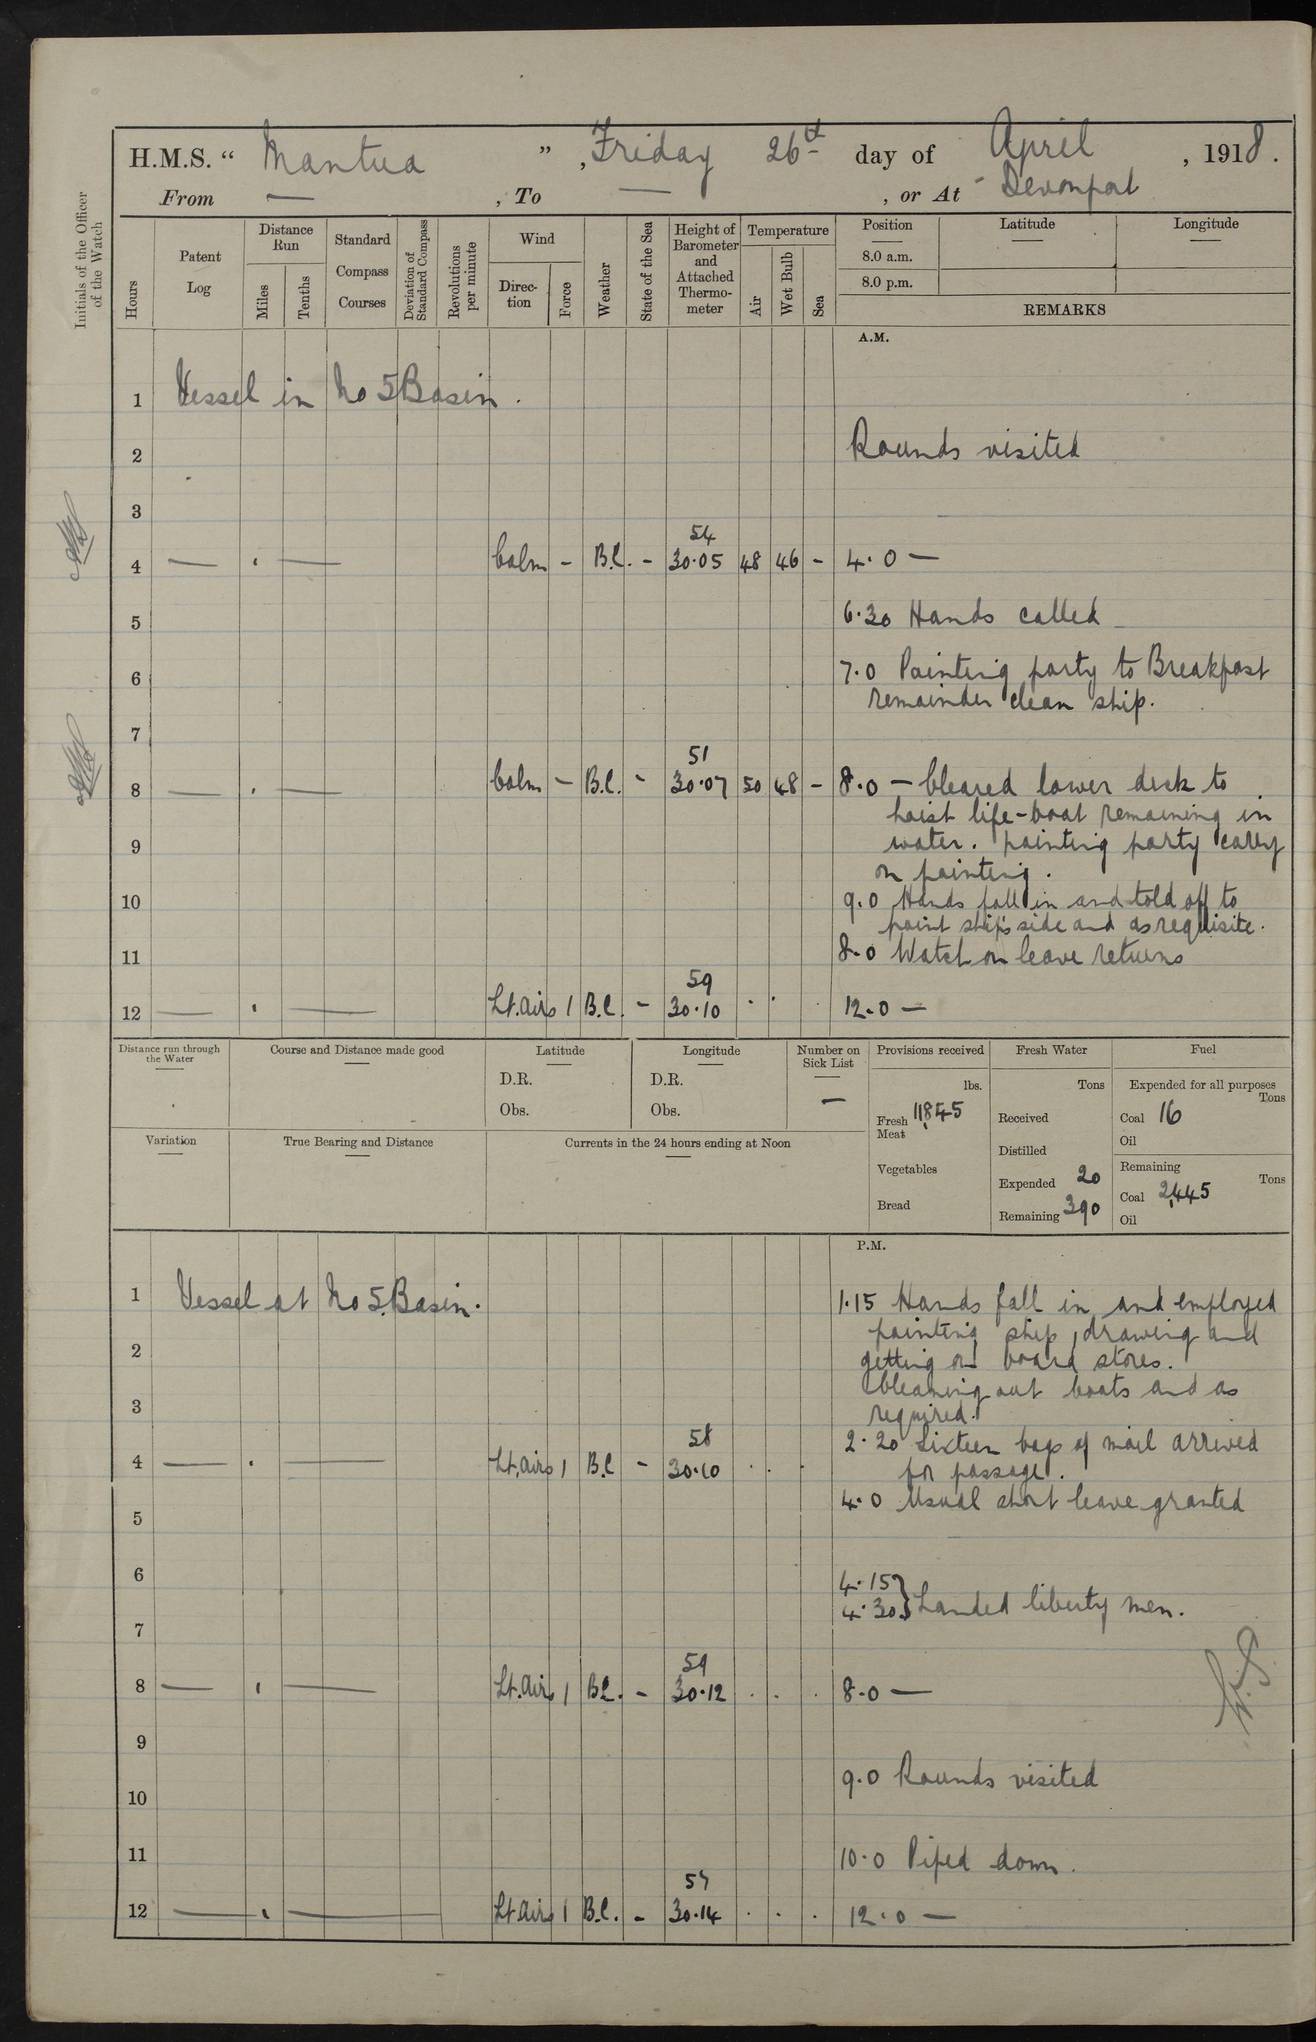 H.M.S. “ Mantua ” , Friday 26th day of April , 1918.
From — , To — , or At - Devonport
Initials of the Officer of the Watch
Hours
Patent Log
Distance Run
Miles
Tenths
Standard Compass Courses
Deviation of Standard Compass
Revolutions per minute
Wind
Direction
Force
Weather
State of the Sea
Height of Barometer and Attached Thermometer
Temperature
Air
Wet Bulb
Sea
Position
8.0 a.m.
8.0 p.m.
Latitude
Longitude
REMARKS
A.M.
1 Vessel in No 5 Basin.
2 Rounds visited
3
54
4 — . — Calm - B.C. - 30.05 48 46 - 4.0 —
5 6.30 Hands called
6 7.0 Painting party to Breakfast
remainder clean ship.
7
51
8 — . — Calm — B.C. - 30.07 50 48 - 8.0 — Cleared lower deck to
hoist life-boat remaining in
9 water. painting party carry
on painting.
10 9.0 Hands fall in and told off to
paint ship's side and as requisite.
11 8.0 Watch on leave returns
59
12 — . — Lt. airs 1 B.C. - 30.10 . . . 12.0 —
Distance run through the Water
Course and Distance made good
Latitude
D.R.
Obs.
Longitude
D.R.
Obs.
Number on Sick List
—
Provisions received
lbs.
Fresh Meat 11,845
Vegetables
Bread
Fresh Water
Tons
Received
Distilled
Expended 20
Remaining 390
Fuel
Expended for all purposes
Tons
Coal 16
Oil
Remaining
Tons
Coal 2,445
Oil
Variation
True Bearing and Distance
Currents in the 24 hours ending at Noon
P.M.
1 Vessel at No 5 Basin. 1.15 Hands fall in and employed
painting ship, drawing and
2 getting on board stores.
Cleaning out boats and as
3 required.
58
2.20 Sixteen bags of mail arrived
4 — . — Lt. airs 1 B.C - 30.10 . . . for passage.
4.0 Usual short leave granted
5
6 4.15
4.30 } Landed liberty men.
7
59
8 — . — Lt. airs 1 B.C. - 30.12 . . . 8.0 —
9
9.0 Rounds visited
10
11 10.0 Piped down.
57
12 — . — Lt. airs 1 B.C. - 30.14 . . . 12.0 —